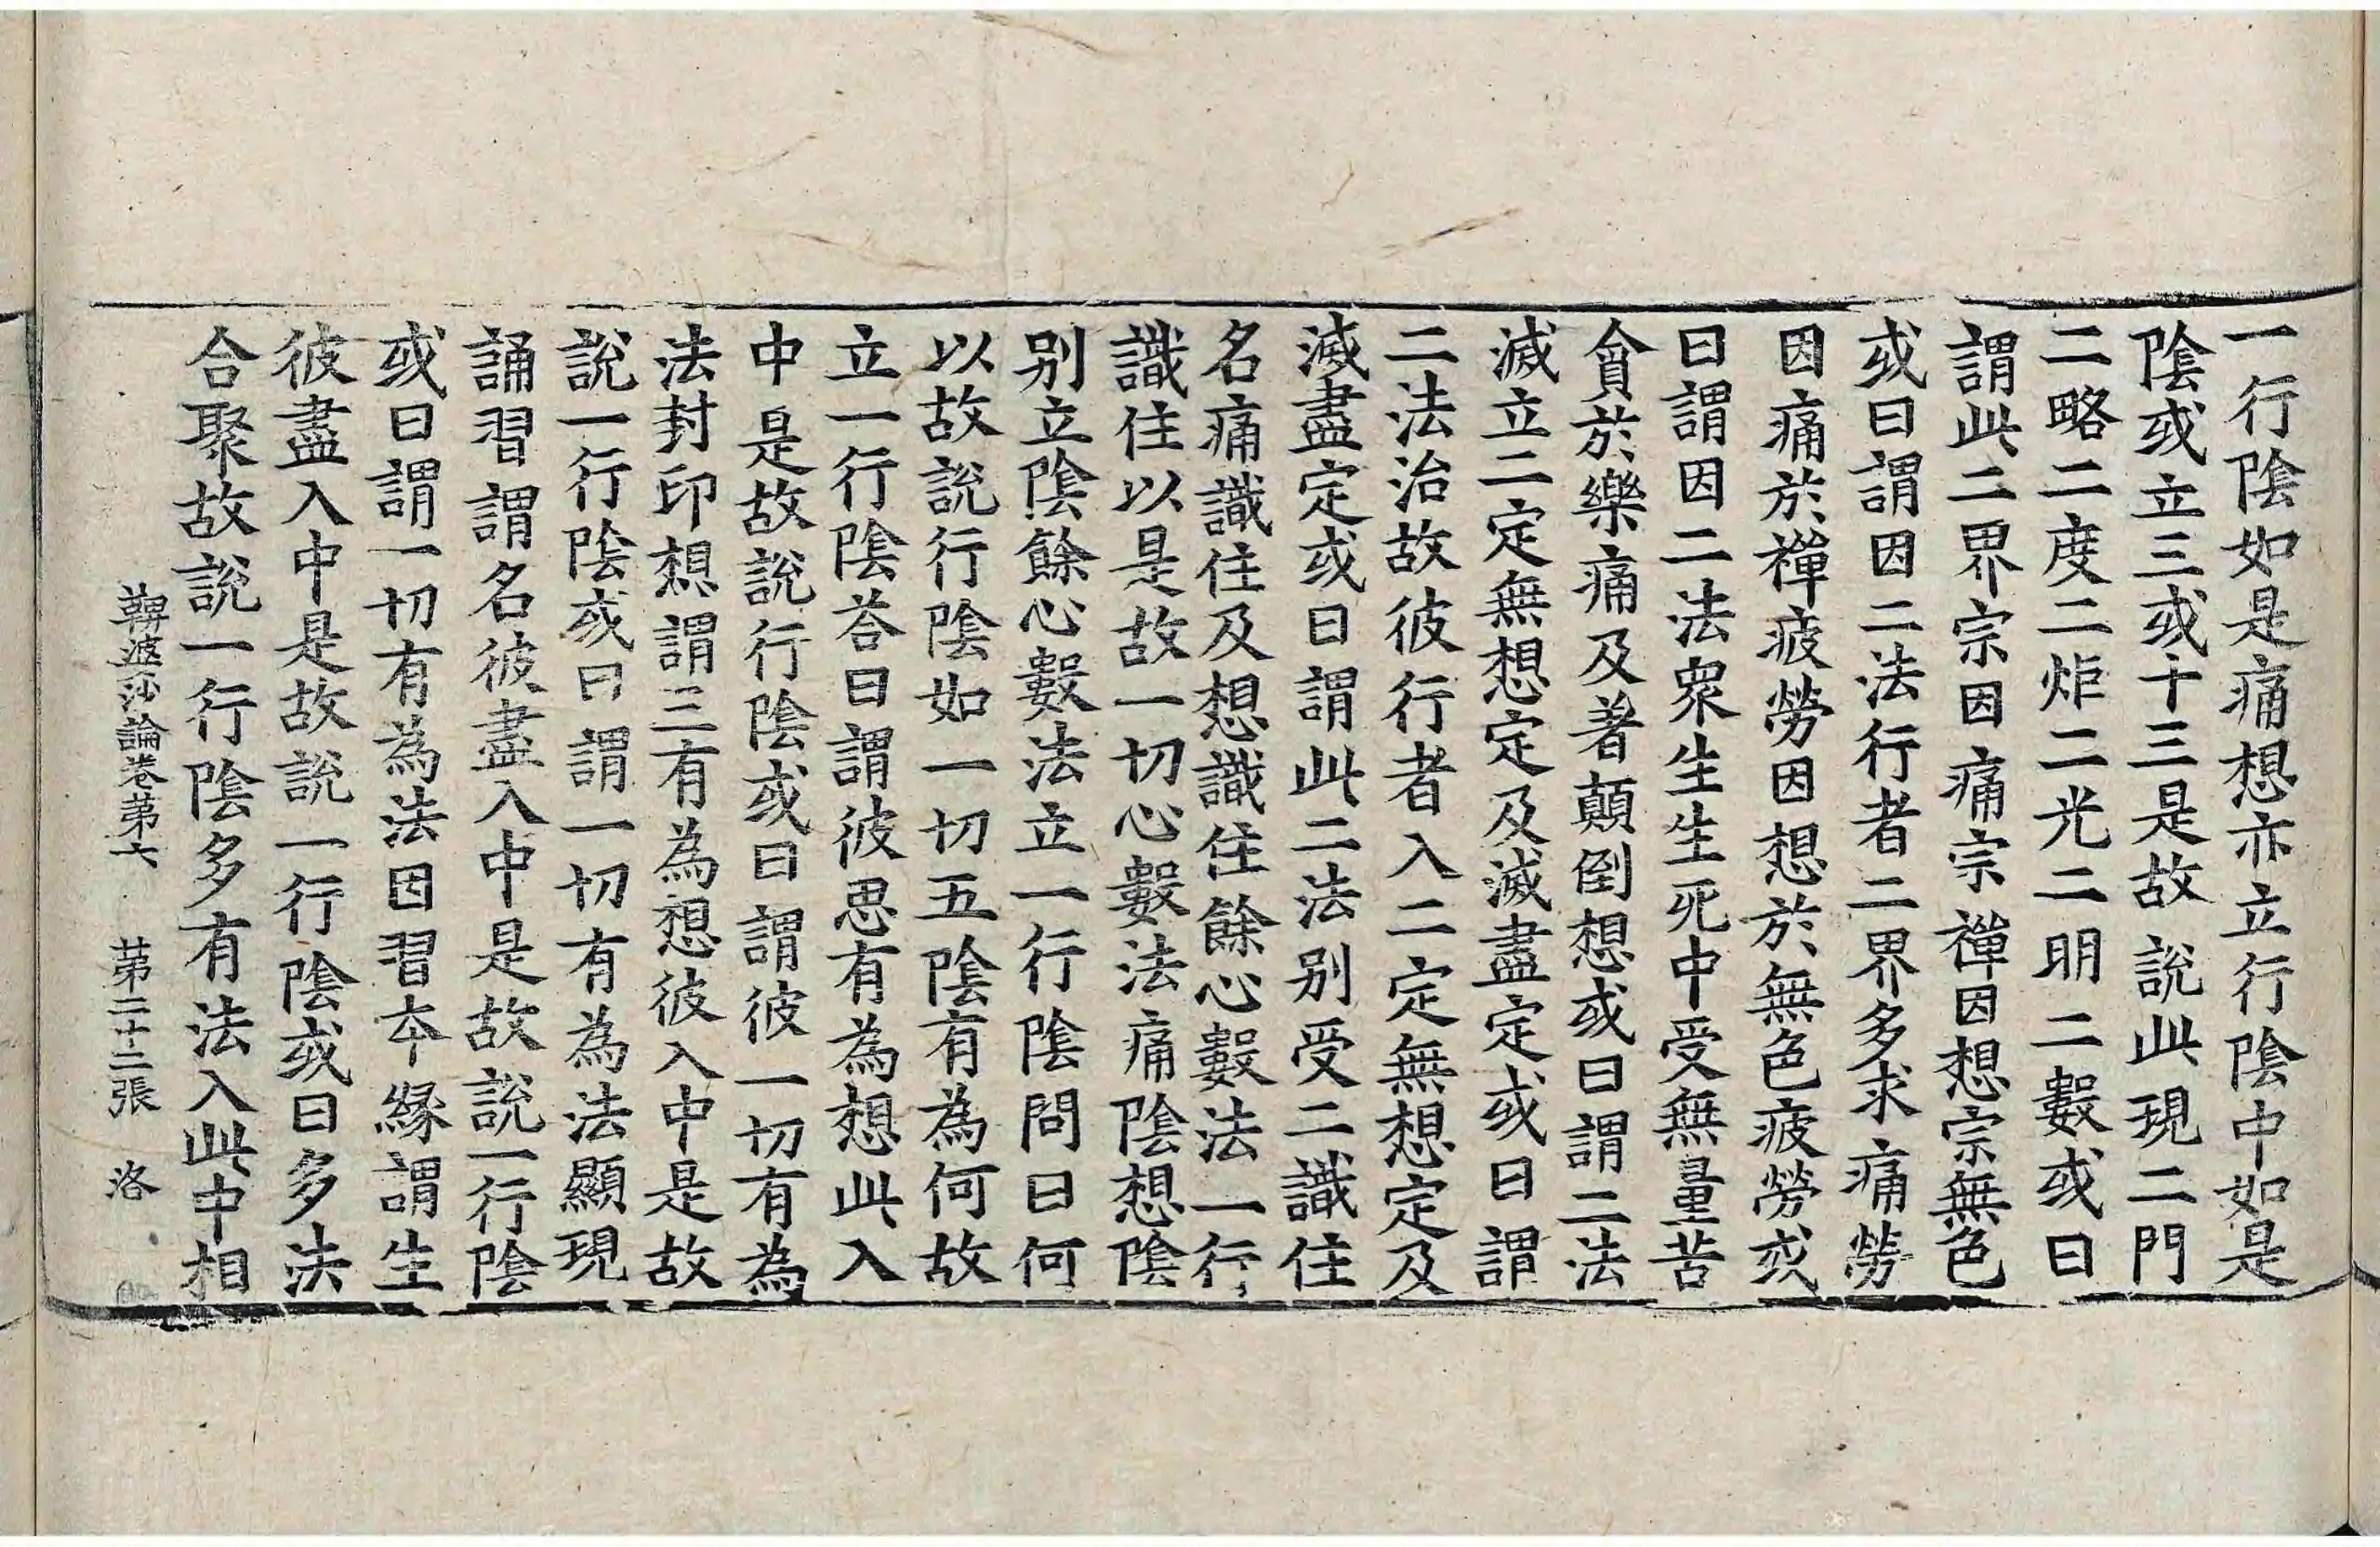 一行陰如是痛想亦立行陰中如是
陰或立三或十三是故說此現二門
二略二度二炬二光二明二數或曰
謂此二界宗因痛宗禪因想宗無色
或曰謂因二法行者二界多求痛勞
因痛於禪疲勞因想於無色疲勞或
曰謂因二法衆生生死中受無量苦
貪於樂痛及著顛倒想或曰謂二法
滅立二定無想定及滅盡定或曰謂
二法治故彼行者入二定無想定及
滅盡定或曰謂此二法別受二識住
名痛識住及想識住餘心數法一行
識住以是故一切心數法痛陰想陰
別立陰餘心數法立一行陰問曰何
以故說行陰如一切五陰有為何故
立一行陰荅曰謂彼思有為想此入
中是故說行陰或曰謂彼一切有為
法封印想謂三有為想彼入中是故
說一行陰或曰謂一切有為法顯現
誦習謂名彼盡入中是故說一行陰
或曰謂一切有為法因習夲緣謂生
彼盡入中是故說一行陰或曰多法
合聚故說一行陰多有法入此中相
鞞婆沙論卷第六 苐二十二張 洛